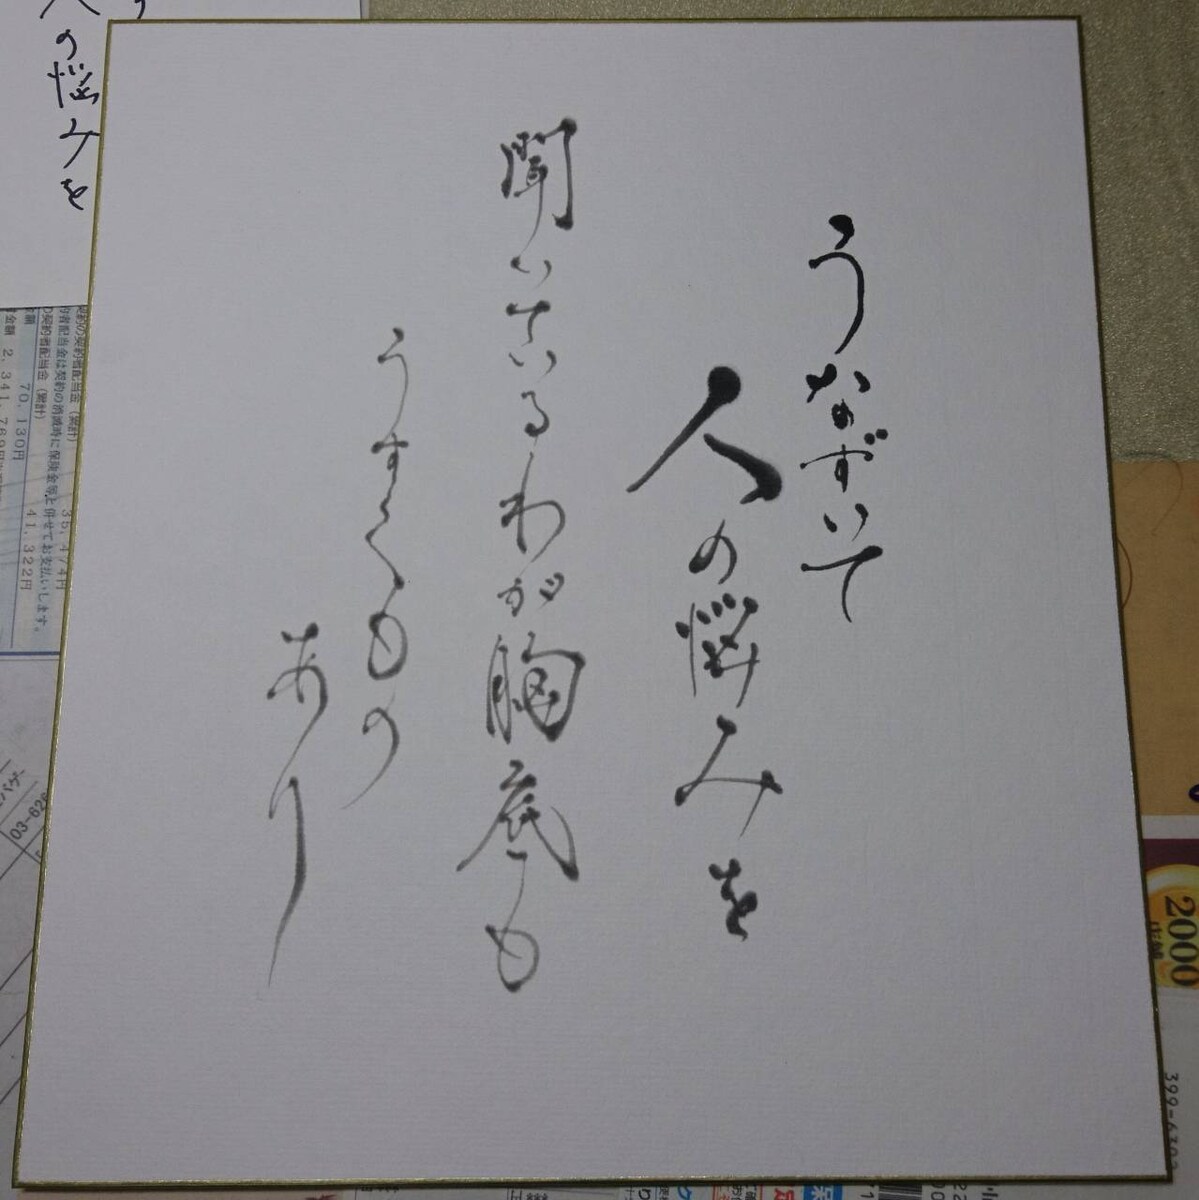 うなずいて
人の悩みを
聞いているわが胸底も
うずくもの
あり
の悩みを
契約者配当金(累計)
70,130円
41,322円
35,474円
者配当金は契約の消滅時に保険金等と併せてお支払いします。
金額
2,341,769円
03-626
2000
399-630